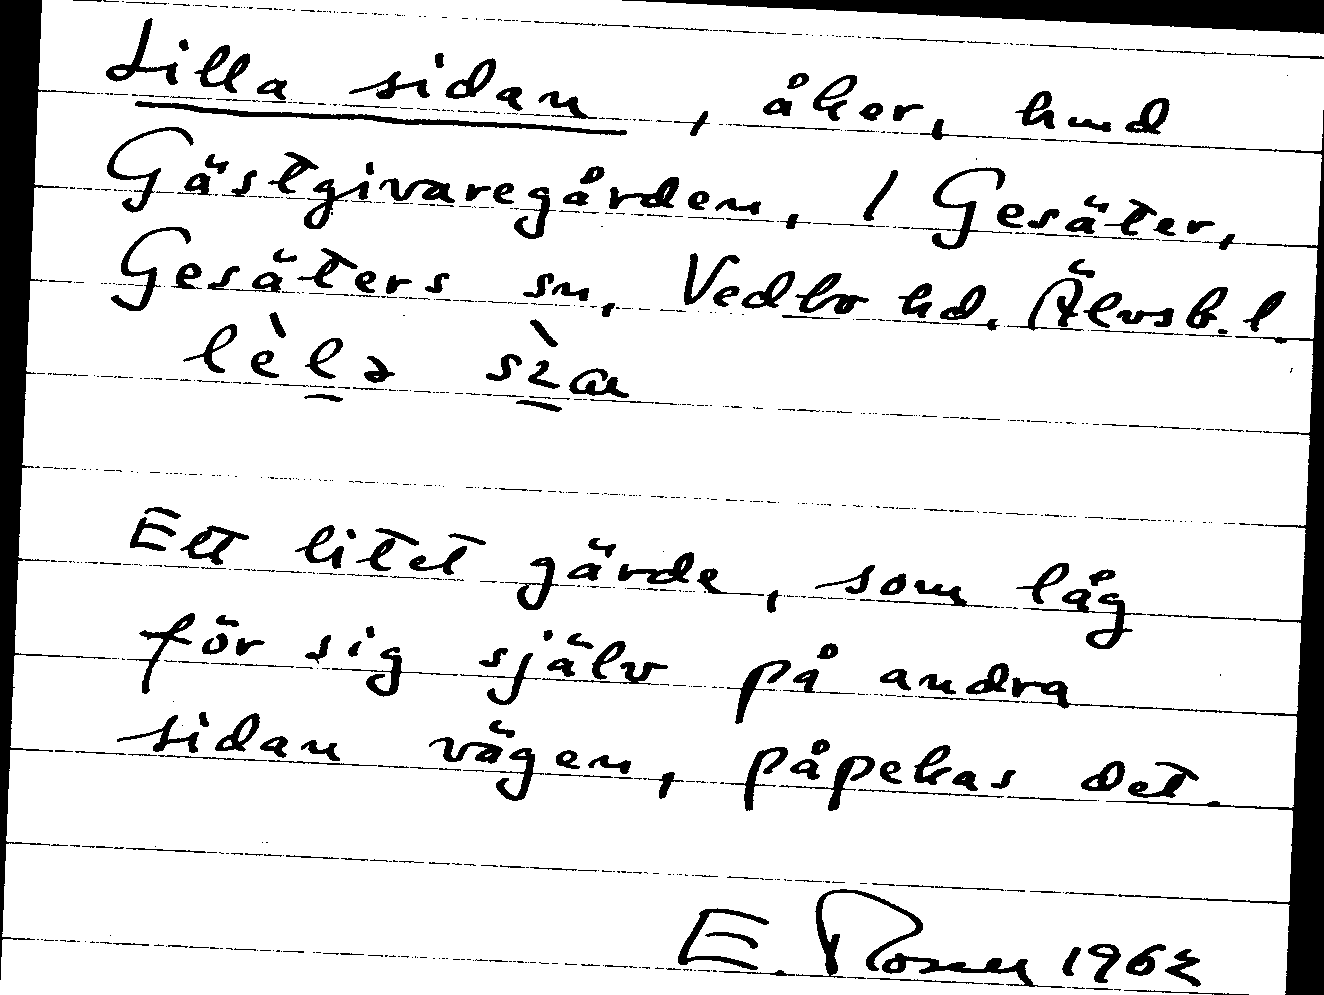 Lilla sidan, åker, hmd
Gästgivaregården, 1 Gesäter,
Gesäters sn, Vedbo hd. Älvsb. l.
Ett litet gärde, som låg
för sig själv på andra
sidan vägen, påpekas det.
E. 1962